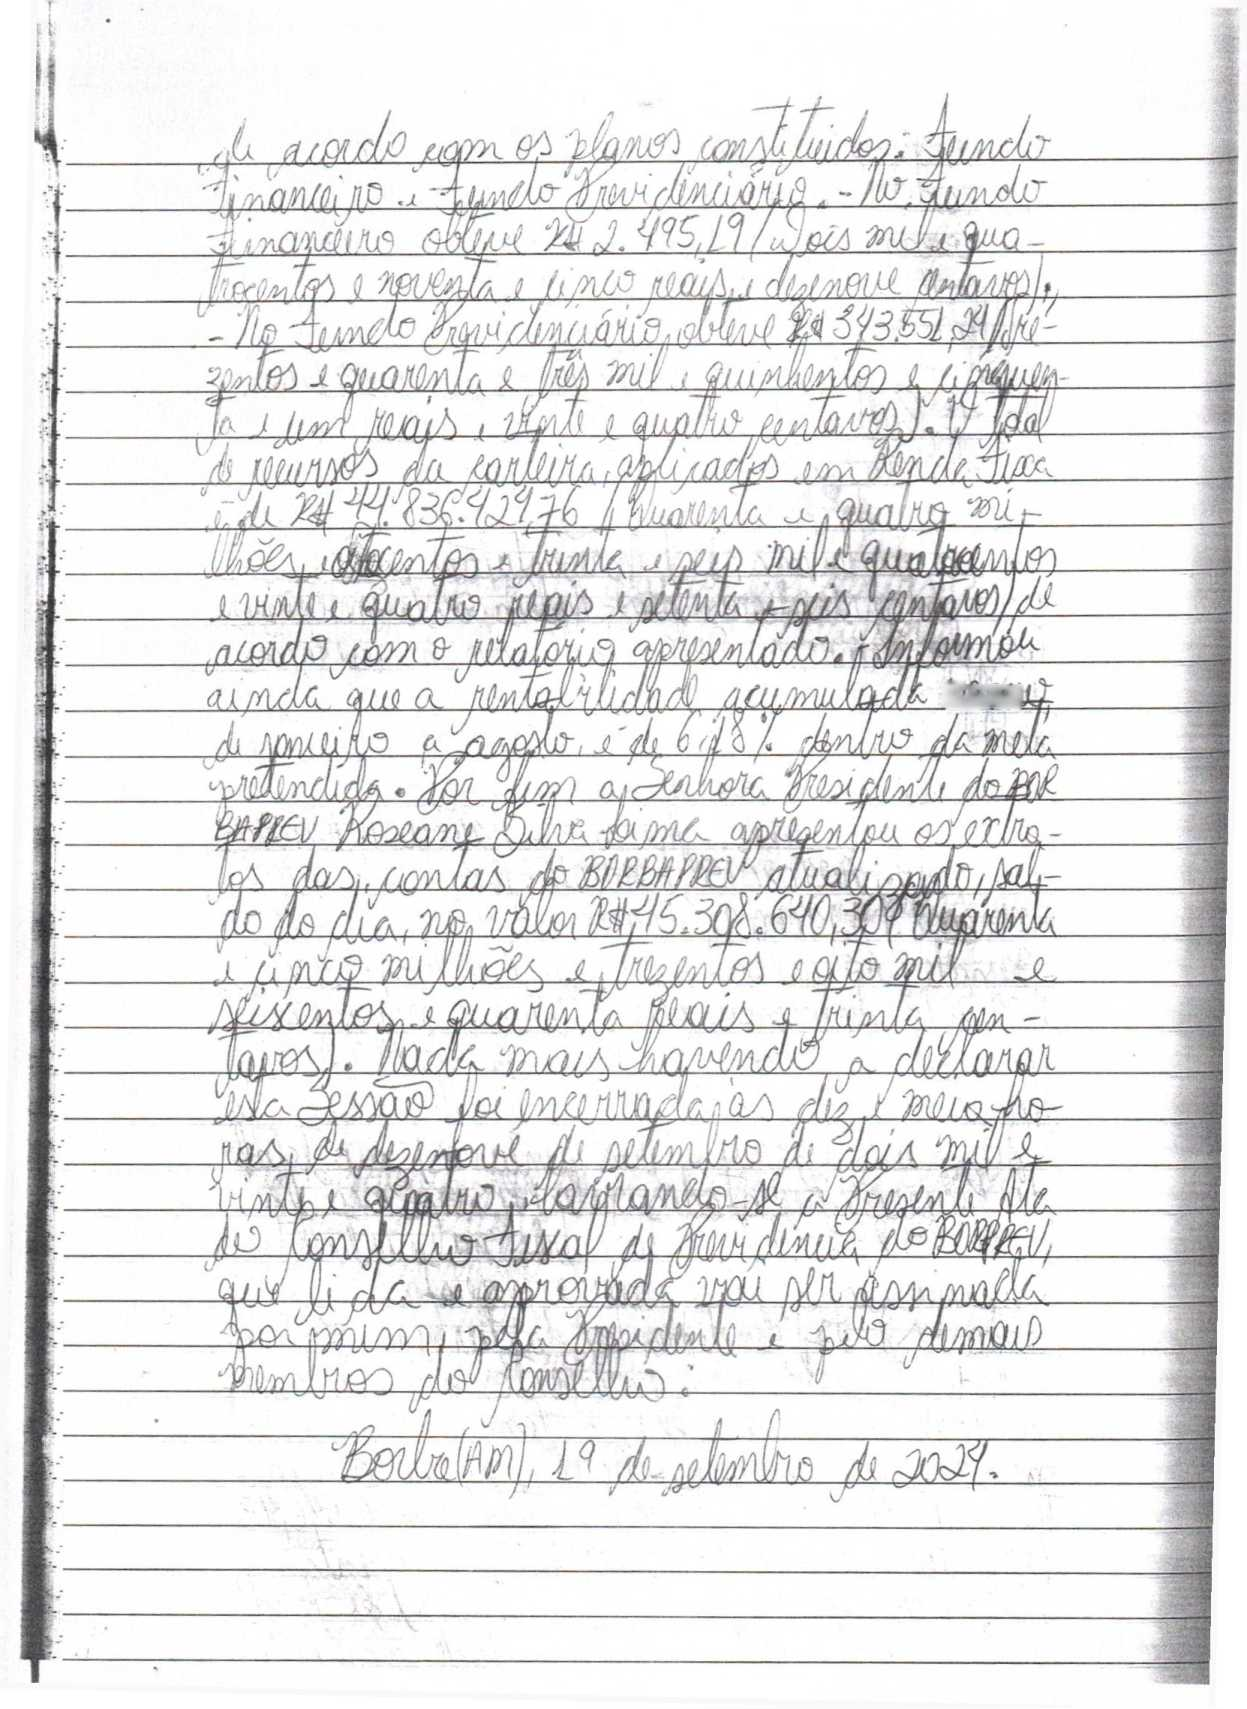 de acordo com os planos constituidos: Fundo
Financeiro e Fundo Previdenciário. - No Fundo
Financeiro obteve R$ 2.495,19 (Dois mil e qua-
trocentos e noventa e cinco reais e dezenove centavos).,
- No Fundo Previdenciário, obteve R$ 343.551,24 (Tre-
zentos e quarenta e três mil e quinhentos e cinquen-
ta e um reais e vinte e quatro centavos). O total
de recursos da carteira, aplicados em Renda Fixa
é de R$ 44.836.424,76 (Quarenta e quatro mi-
lhões e oitocentos e trinta e seis mil e quatrocentos
e vinte e quatro reais e setenta e seis centavos) de
acordo com o relatório apresentado. Informou
ainda que a rentabilidade acumulada
de janeiro a agosto, é de dentro da meta
pretendida. Por fim a Senhora Presidente do BOR
BAPREV Roseane Silva Lima apresentou os extra-
tos das contas do BORBAPREV atualizado, sal-
do do dia, no valor R$ 45.308.640,30 (Quarenta
e cinco milhões e trezentos e oito mil e
seiscentos e quarenta reais e trinta cen-
tavos). Nada mais havendo a declarar
esta Sessão foi encerrada às dez e meia ho-
ras, de dezenove de setembro de dois mil e
vinte e quatro, lavrando-se a Presente Ata
do Conselho Fiscal de Previdência do
que lida e aprovada vai ser assinada
por mim, pela Presidente e pelo demais
membros do Conselho:
Borba(AM), 19 de setembro de 2024.